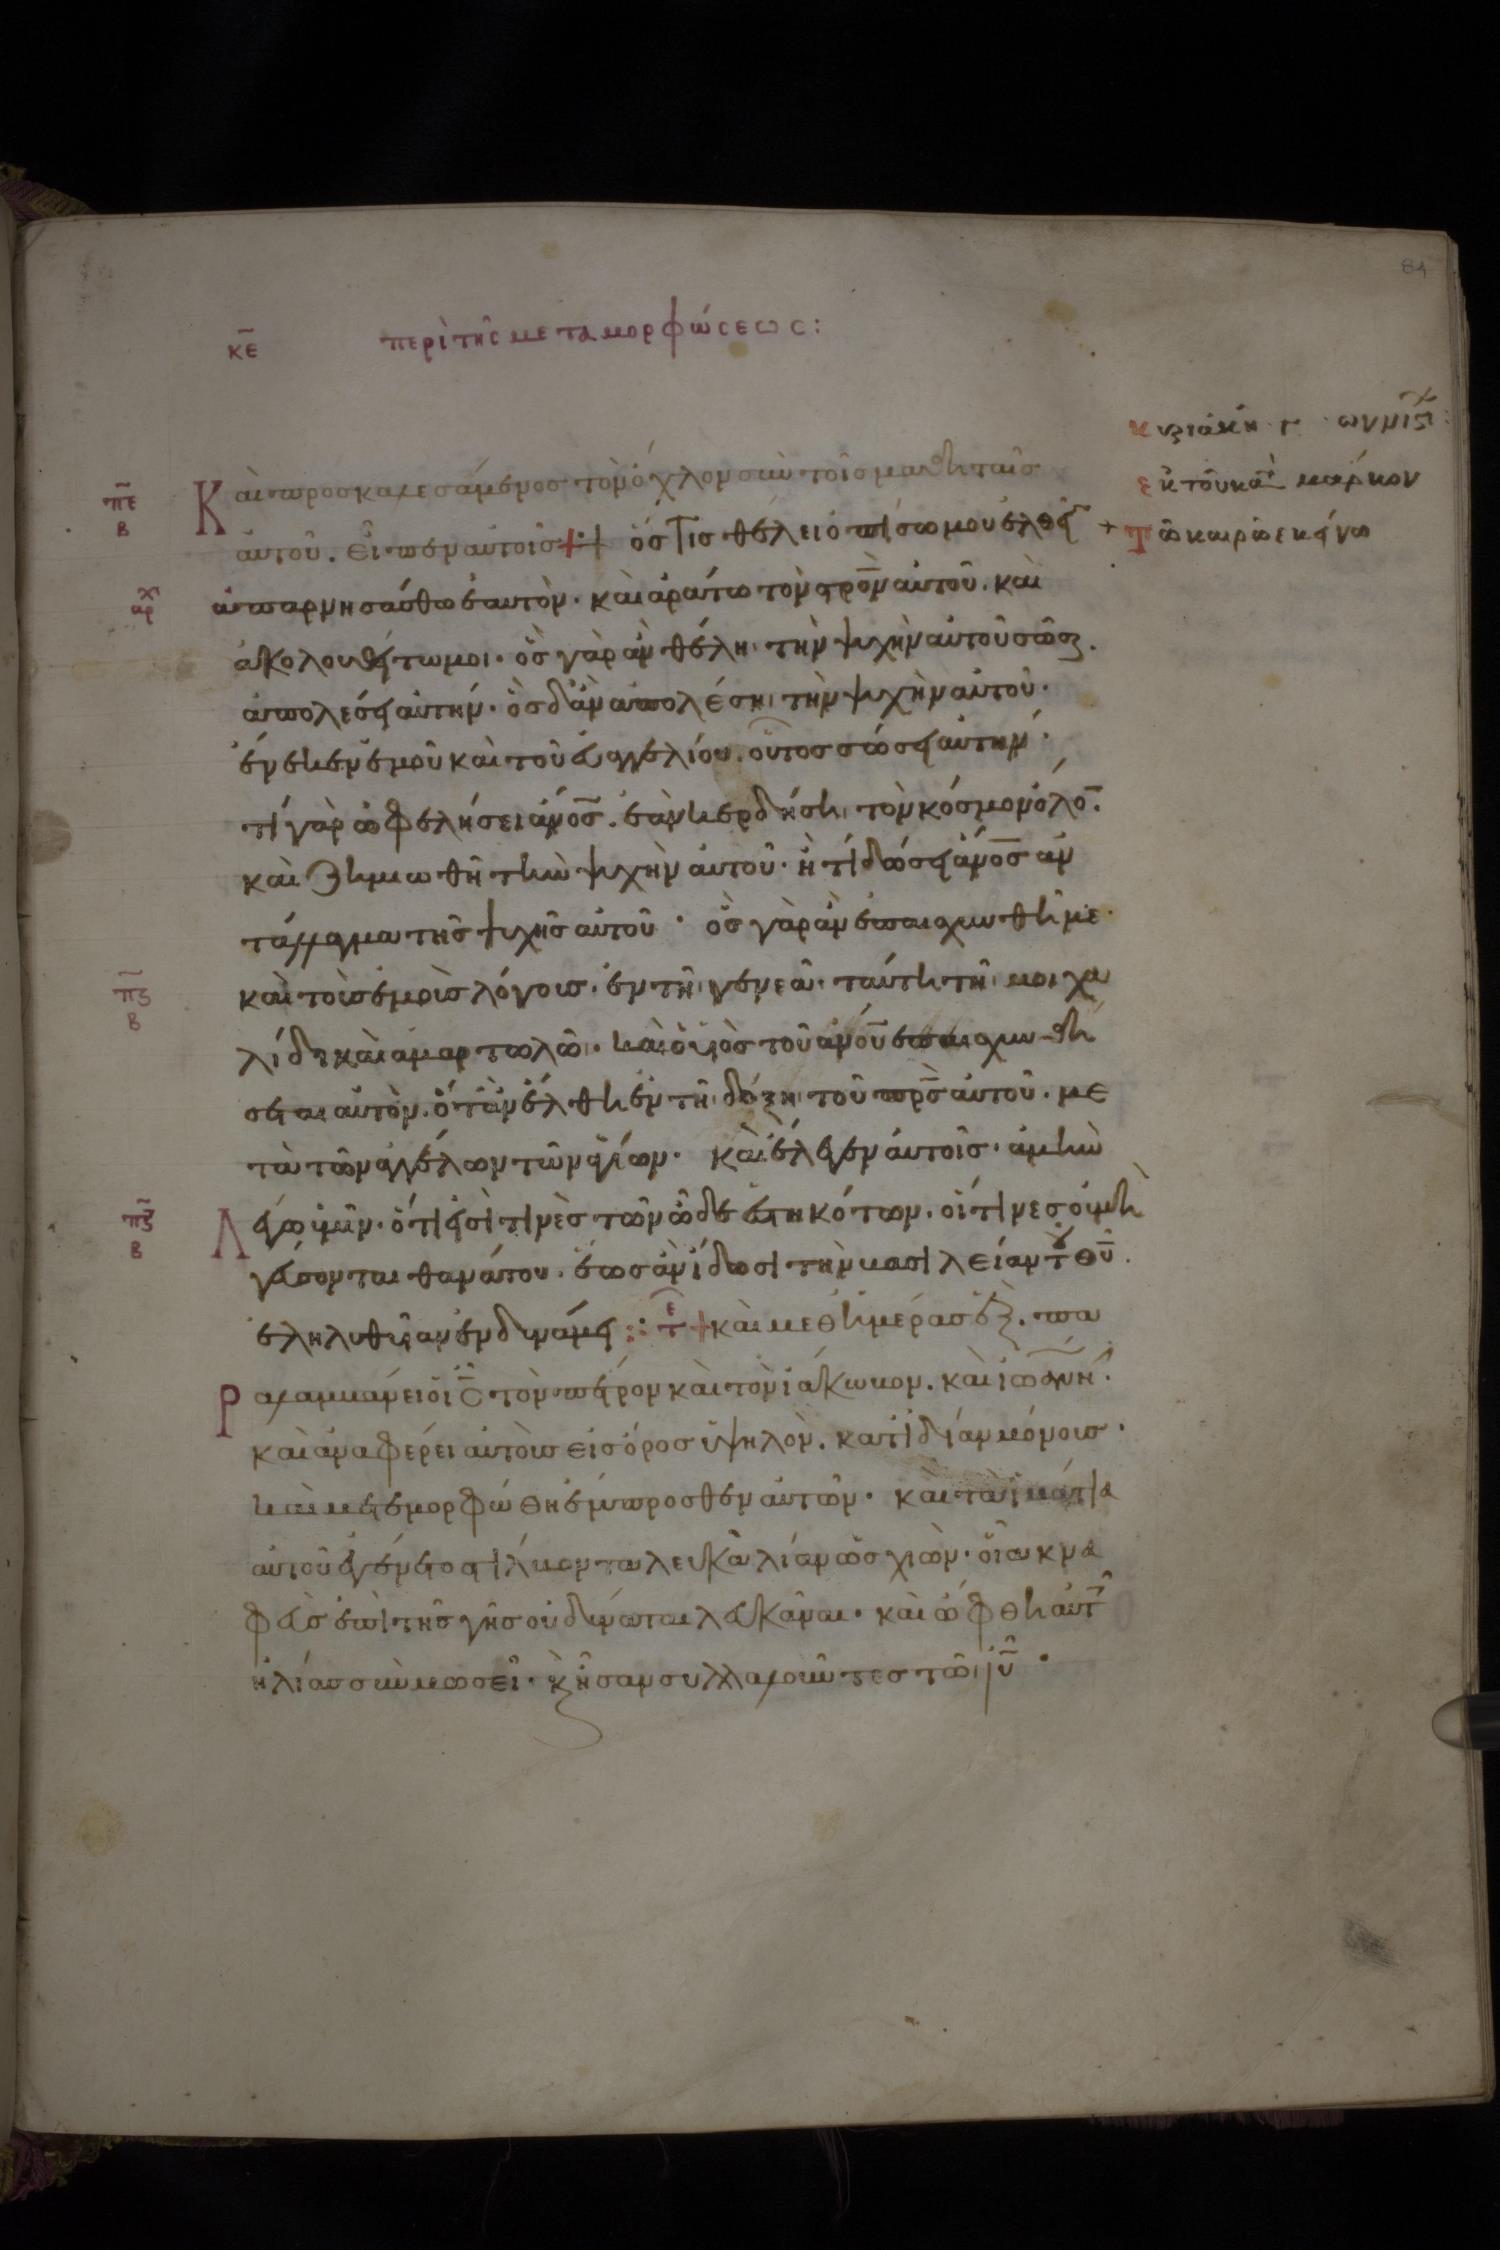 84
κε περὶ τῆς μεταμορφώσεως:
κυριακῆ γ τῶν νηστ
ἐκ τοῦ κατὰ μάρκον
Τῶ καιρῶ ἐκείνω
πε
β
Καὶ προσκαλεσάμενος τὸν ὄχλον σὺν τοῖς μαθηταῖς
αὐτοῦ. εἶπεν αὐτοῖς ὅστις θέλει ὀπίσω μου ἐλθεῖ
αρχ
ἀπαρνησάσθω ἑαυτὸν. καὶ ἀράτω τὸν στρον αὐτοῦ. καὶ
ἀκολουθείτω μοι. ὃς γὰρ ἂν θέλη τὴν ψυχὴν αὐτοῦ σῶσ.
ἀπολέσει αὐτήν. ὃς δ' ἂν ἀπολέση τὴν ψυχὴν αὐτοῦ.
ἕνεκεν ἐμοῦ καὶ τοῦ εὐαγγελίου. οὗτος σώσει αὐτήν.
τί γὰρ ὠφελήσει ἀνος. ἐὰν κερδήση τὸν κόσμον ὅλο.
καὶ ζημιωθῆ τὴν ψυχὴν αὐτοῦ. ἢ τί δώσει ἀνος ἀν
τάλλαγμα τῆς ψυχῆς αὐτοῦ. ὃς γὰρ ἂν ἐπαισχυνθῆ με.
πς
β
καὶ τοὺς ἐμοὺς λόγους. ἐν τῆ γενεᾶ. ταύτη τῆ μοιχα
λίδι καὶ ἁμαρτωλῶ. καὶ ὁ υἱὸς τοῦ ἀνου ἐπαισχυνθή
σεται αὐτὸν. ὅταν ἔλθη ἐν τῆ δόξη τοῦ πρς αὐτοῦ. με
τὰ τῶν ἀγγέλων τῶν ἁγίων. καὶ ἔλεγεν αὐτοῖς. ἀμὴν
πζ
β
Λέγω ὑμῖν. ὅτι εἰσὶ τινὲς τῶν ὧδε ἑστηκότων. οἵτινες οὐ μὴ
γεύσονται θανάτου. ἕως ἂν ἴδωσι τὴν βασιλείαν τοῦ θυ.
ἐληλυθυῖαν ἐν δυνάμει: τε καὶ μεθ' ἡμέρας ἓξ. πα
Ραλαμβάνει ὁ ις τὸν πέτρον καὶ τὸν ἰάκωβον. καὶ ἰωάννη.
καὶ ἀναφέρει αὐτοὺς εἰς ὄρος ὑψηλὸν. κατ' ἰδίαν μόνους.
καὶ μετεμορφώθη ἔμπροσθεν αὐτῶν. καὶ τὰ ἱμάτια
αὐτοῦ ἐγένετο στίλβοντα λευκὰ λίαν ὡς χιὼν. οἷα κνα
φεὺς ἐπὶ τῆς γῆς οὐ δύναται λευκᾶναι. καὶ ὤφθη αὐτ
ἠλίας σὺν μωσεῖ. κ ἦσαν συλλαλοῦντες τῶ ιυ.